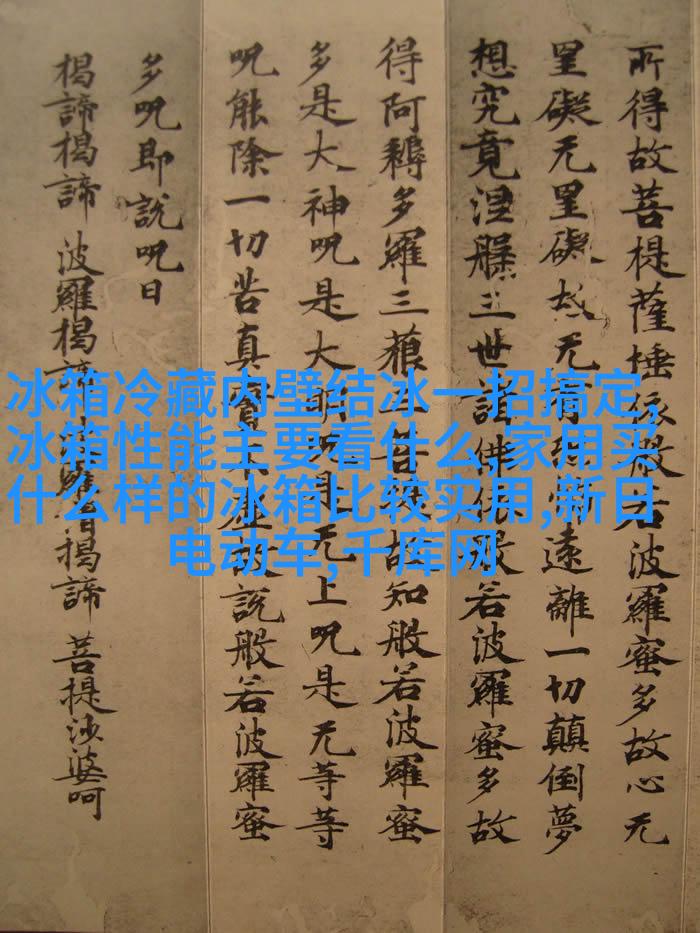 所得故菩提薩埵依般若波羅蜜多故心无
罣礙无罣礙故无有恐怖遠離一切顛倒夢
想究竟涅槃三世諸佛依般若波羅蜜多故
得阿耨多羅三藐三菩提故知般若波羅蜜
多是大神呪是大明呪是无上呪是无等等
呪能除一切苦真實不虛故說般若波羅蜜
多呪即說呪曰
揭諦揭諦 波羅揭諦 波羅僧揭諦 菩提沙婆呵
冰箱冷藏内壁结冰一招搞定,
冰箱性能主要看什么,家用买
什么样的冰箱比较实用,新日
电动车,千库网